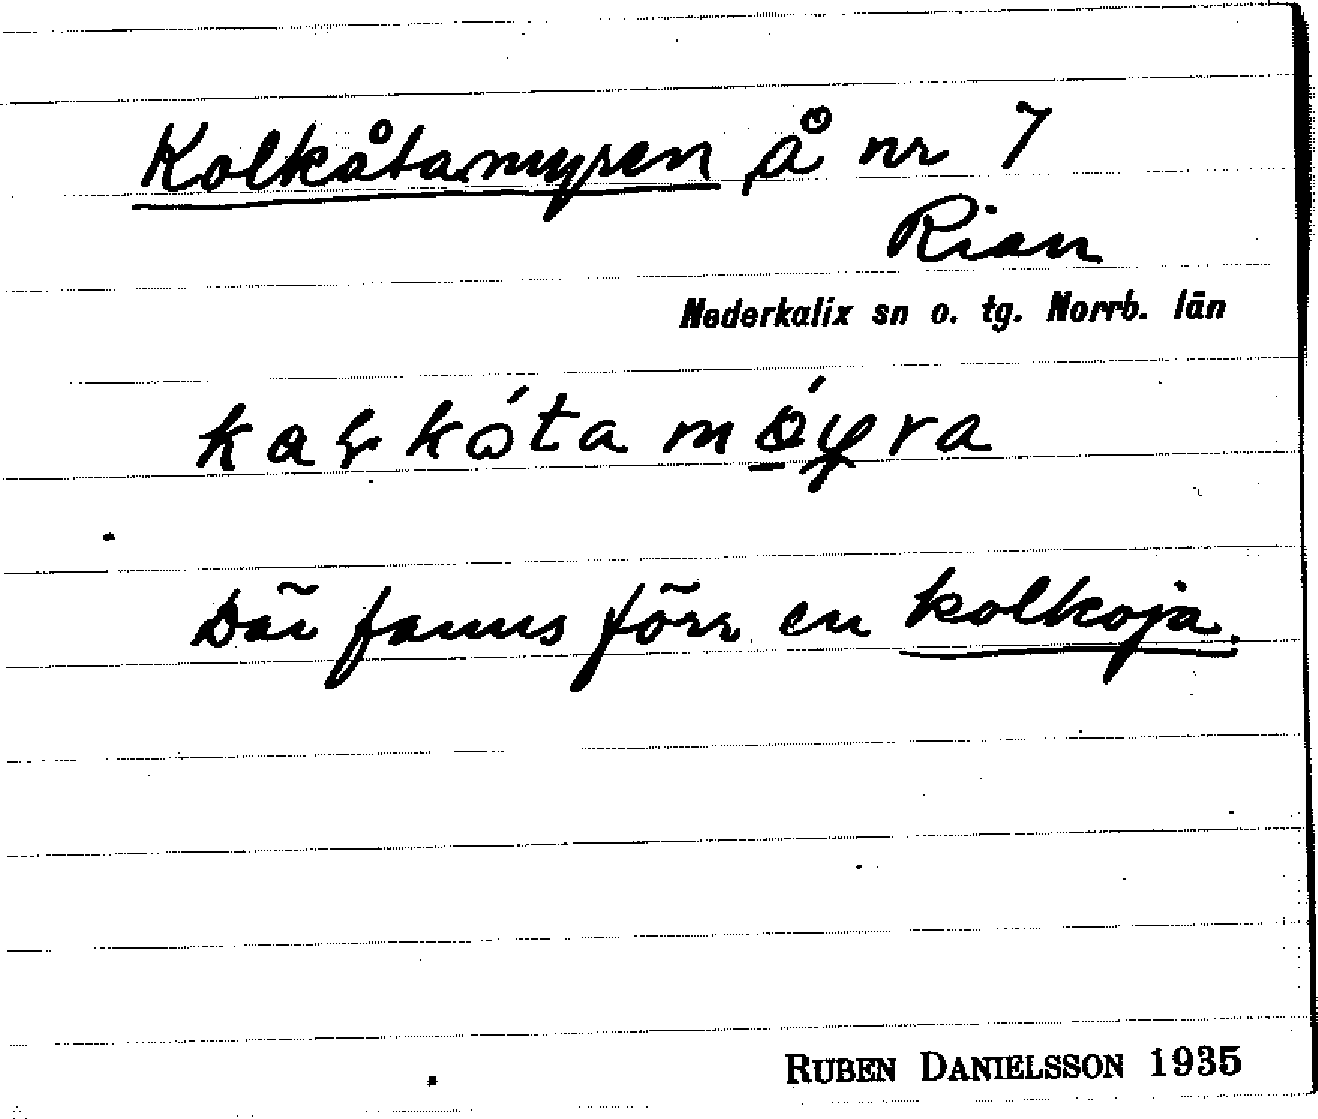 Kolkåtamyren på nr 7
Rian
Nederkalix sn o. tg. Norrb. län
Där fanns förr en kolkoja.
RUBEN DANIELSSON 1935